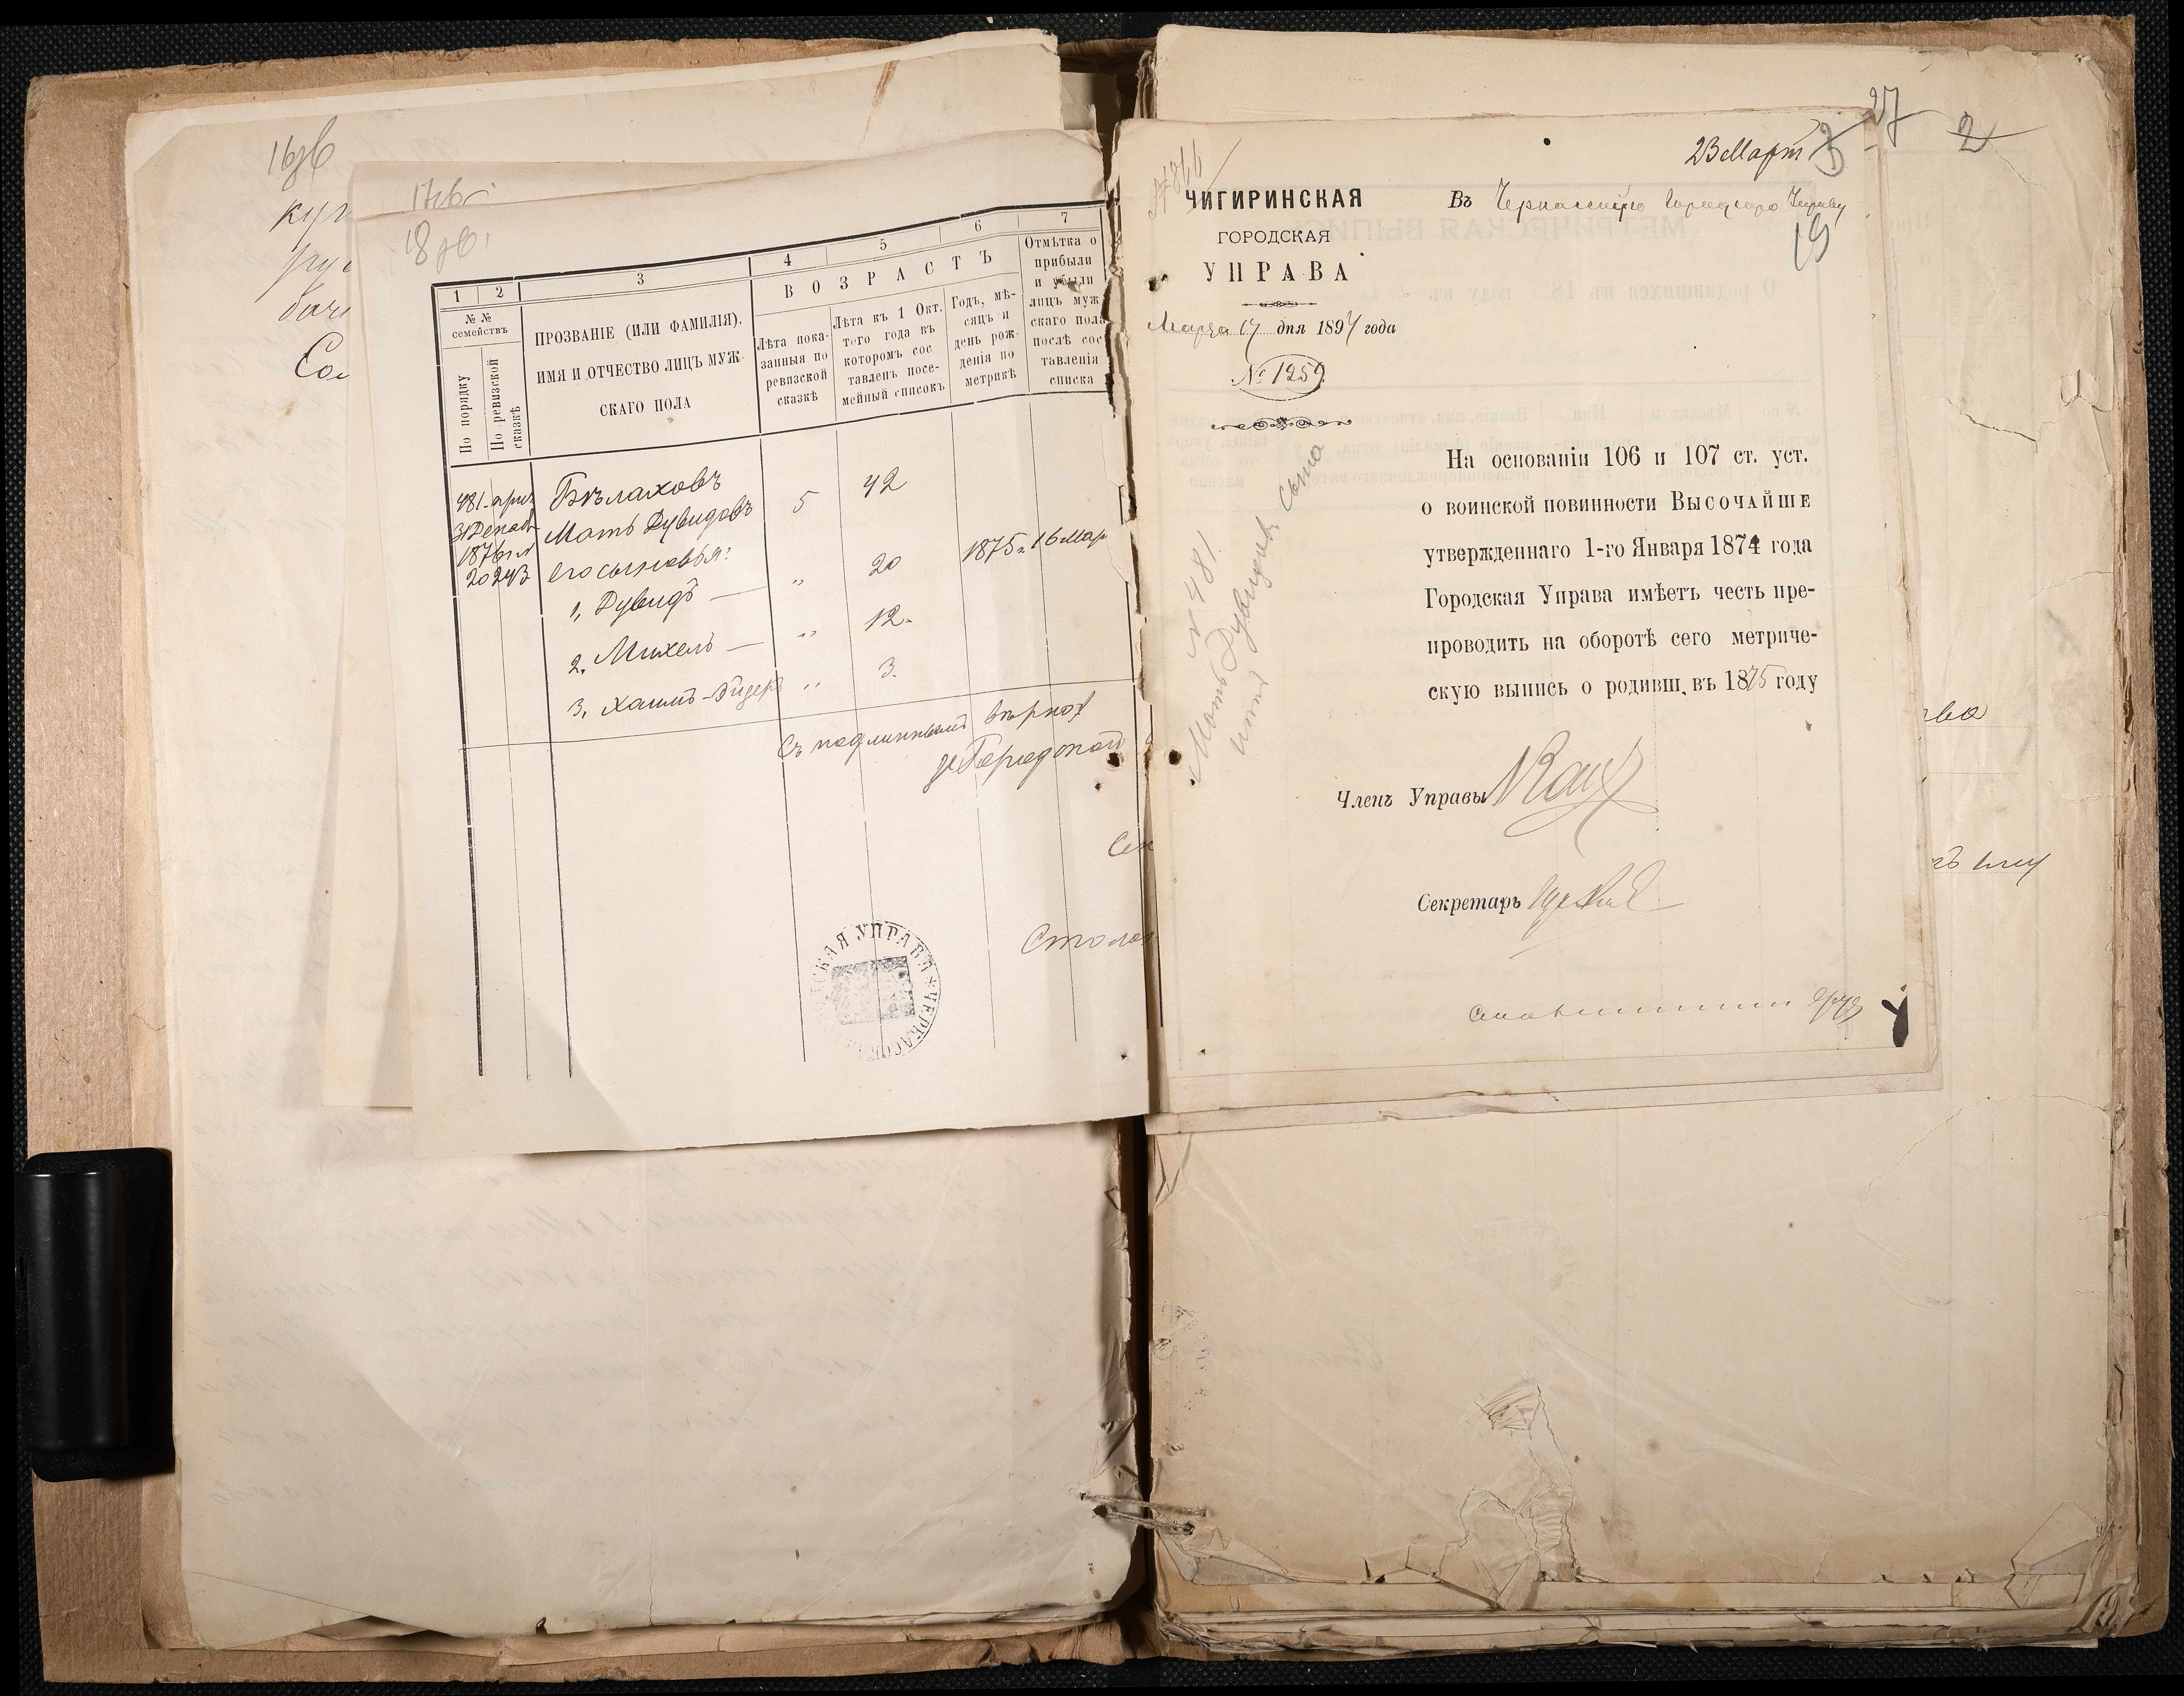 16об
17об
18об.
1 2 3 4 5 6 7
№ №
семействъ
По порядку
По ревизской
сказкѣ
ПРОЗВАНІЕ (ИЛИ ФАМИЛІЯ),
ИМЯ И ОТЧЕСТВО ЛИЦЪ МУЖ-
СКАГО ПОЛА
ВОЗРАСТЪ
Лѣта пока-
занныя по
ревизской
сказкѣ
Лѣта къ 1 Окт.
того года въ
которомъ сос
тавленъ посе-
мейный списокъ
Годъ, мѣ-
сяцъ и
день рож-
денія по
метрикѣ
Отмѣтка о
прибыли
и убыли
лицъ муж
скаго пола
послѣ сос
тавленія
списка
481. Бѣлаховъ
31 Декаб Мотъ Дувидовъ 5 42
1876
20243 его сыновья:
1, Дувидъ — „ 20 1875 г. 16 Мар
2, Михель — „ 12.
3, Хаимъ- „ 3.
Съ подлиннымъ вѣрно
Городской
Сек
Столон
УПРАВА * ЧЕРКАССК
23 Март
27
2
19
ЧИГИРИНСКАЯ
ГОРОДСКАЯ
УПРАВА
Марта 17 дня 1897 года
№ 1259
Въ Черкасскую Городскую Управу
На основаніи 106 и 107 ст. уст.
о воинской повинности ВЫСОЧАЙШЕ
утвержденнаго 1-го Января 1874 года
Городская Управа имѣетъ честь пре-
проводить на оборотѣ сего метриче-
скую выпись о родивш. въ 1875 году
№ 481.
Мотъ Дувидовъ сына
Членъ Управы
Секретарь